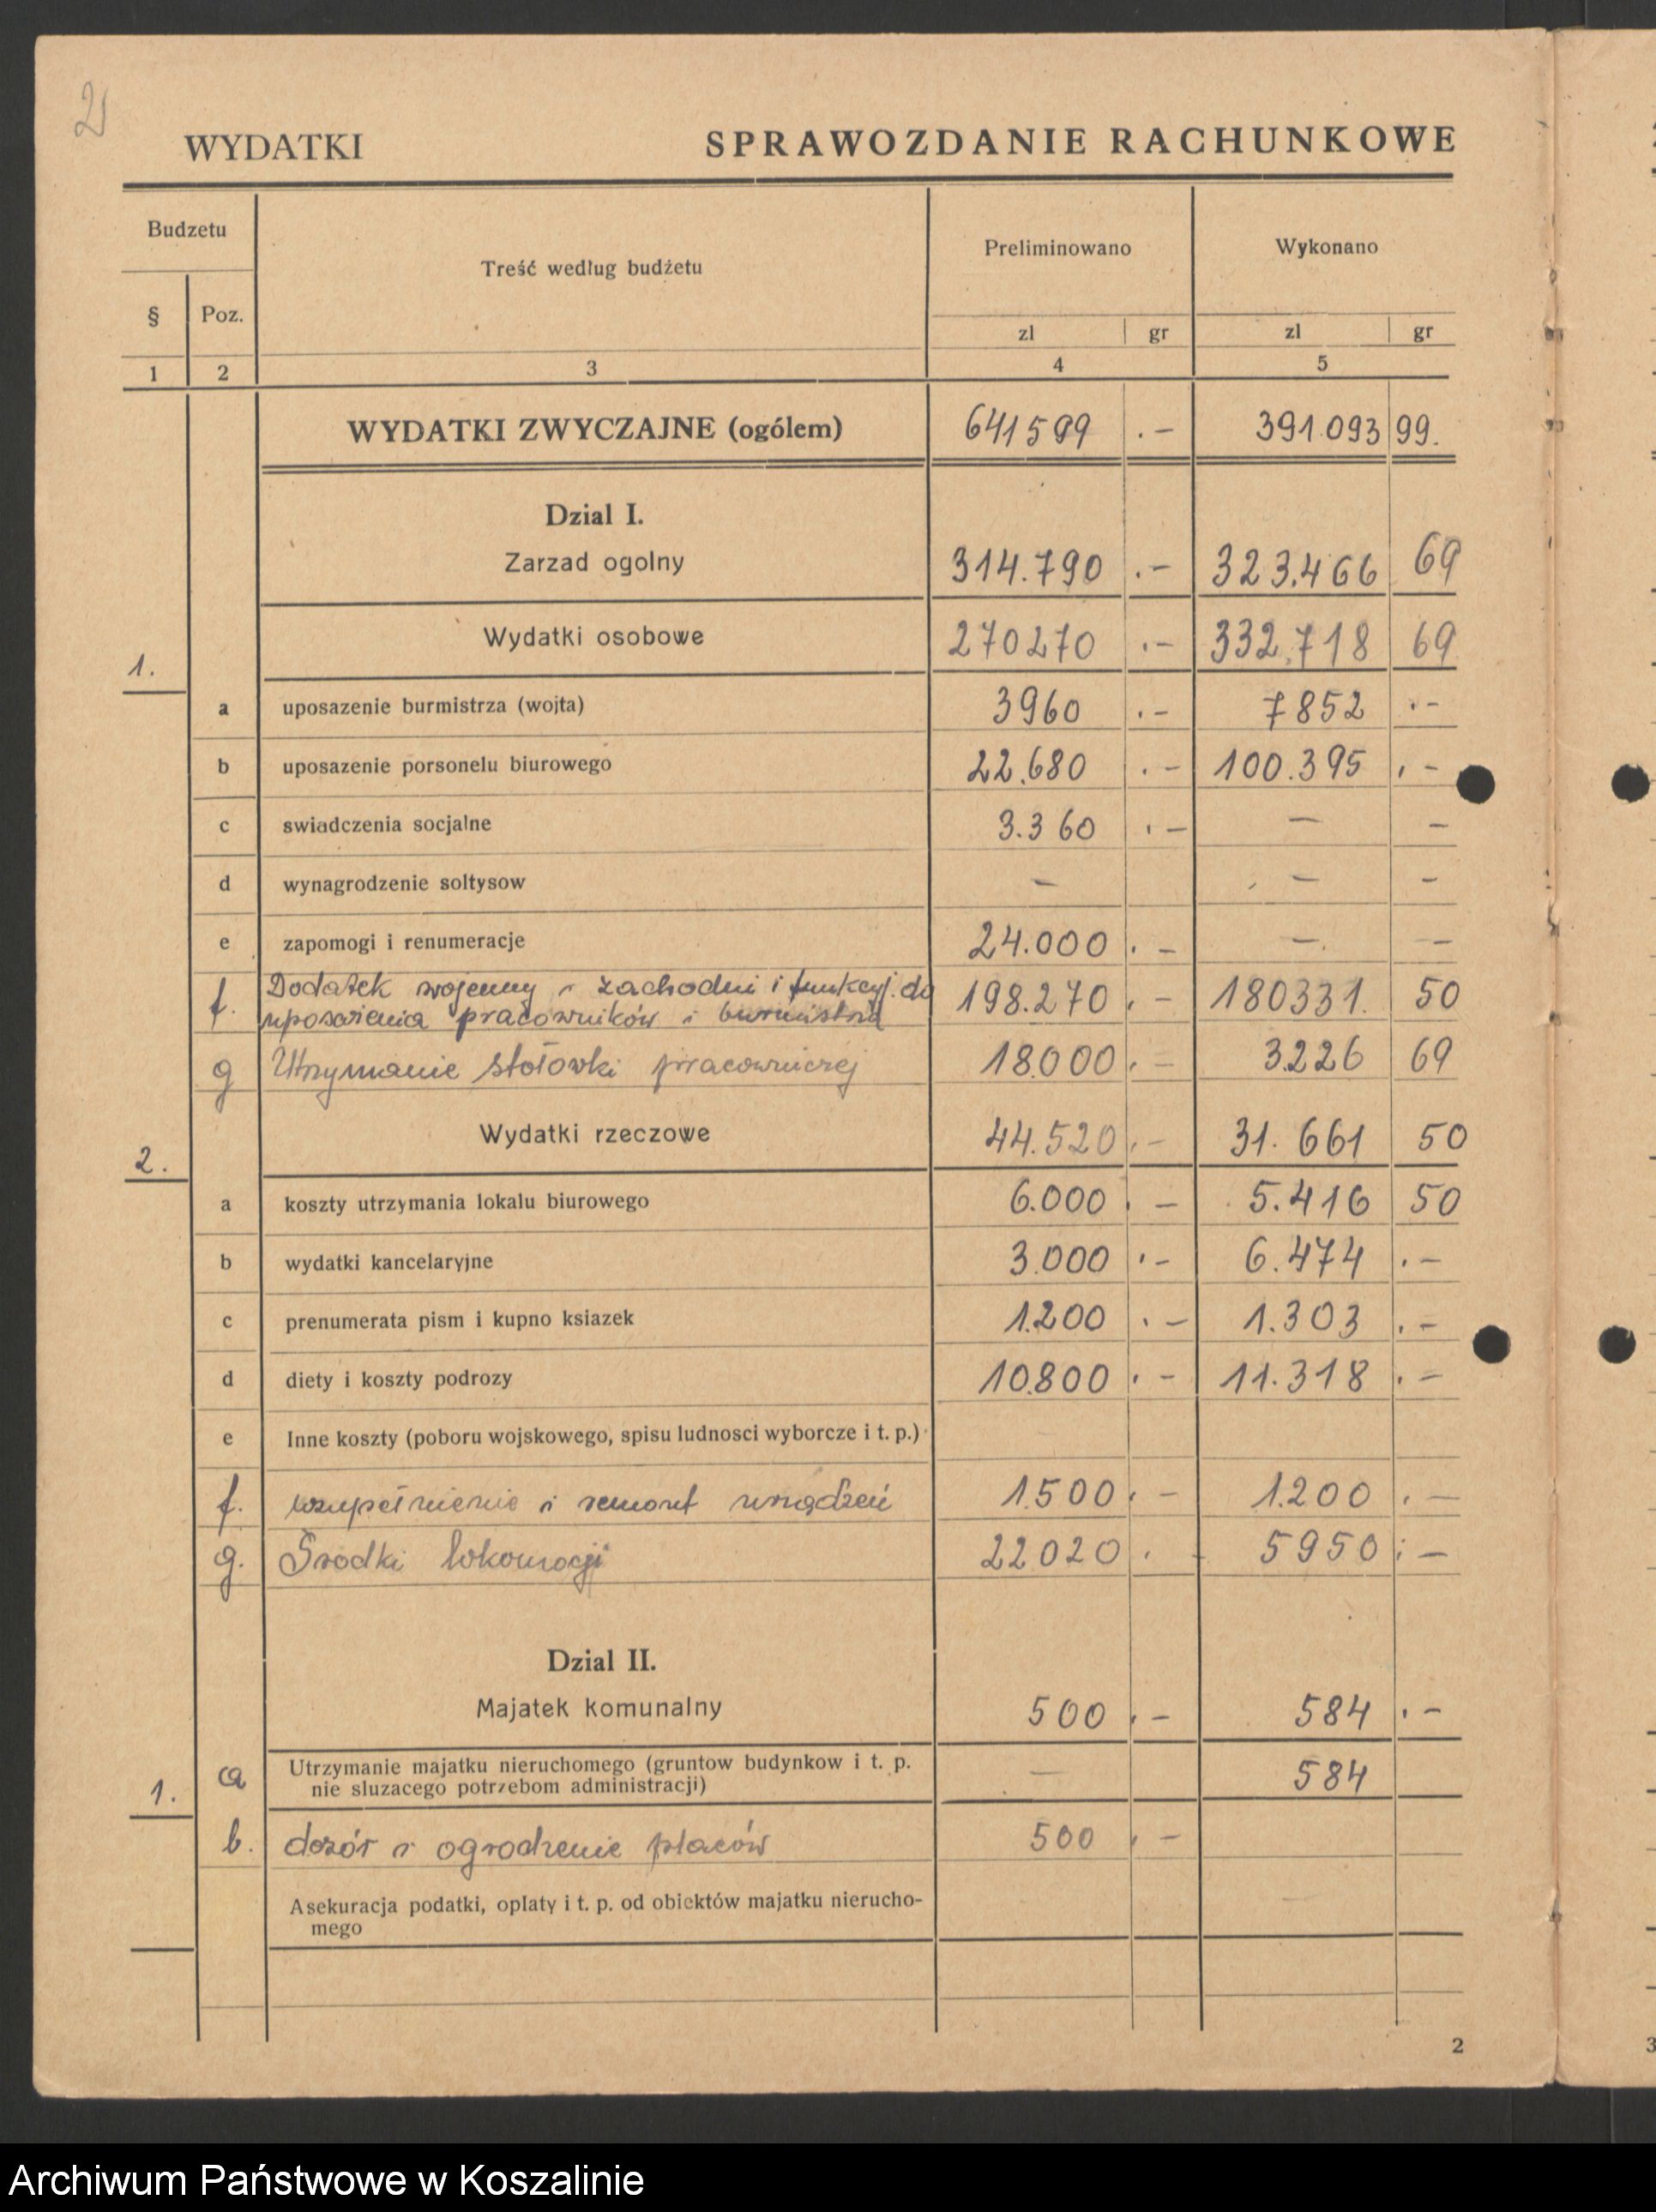 2
WYDATKI SPRAWOZDANIE RACHUNKOWE
Budzetu Treść według budżetu Preliminowano Wykonano
§ Poz. zl gr zl gr
1 2 3 4 5
WYDATKI ZWYCZAJNE (ogólem) 641599 .- 391.093 99.
Dzial I.
Zarzad ogolny 314.790 .- 323.466 69
1. Wydatki osobowe 270270 .- 332.718 69
a uposazenie burmistrza (wojta) 3960 .- 7852 .-
b uposazenie porsonelu biurowego 22.680 .- 100.395 .-
c swiadczenia socjalne 3.360 .- — -
d wynagrodzenie soltysow — — -
e zapomogi i renumeracje 24.000 .- — —
f. Dodatek wojenny i zachodni i funkcyj. do 198.270 .- 180331. 50
uposażenia pracowników i burmistrza
g Utrzymanie stołówki pracowniczej 18.000 .- 3.226 69
2. Wydatki rzeczowe 44.520 .- 31.661 50
a koszty utrzymania lokalu biurowego 6.000 .- 5.416 50
b wydatki kancelaryjne 3.000 .- 6.474 .-
c prenumerata pism i kupno ksiazek 1.200 .- 1.303 .-
d diety i koszty podrozy 10.800 .- 11.318 .-
e Inne koszty (poboru wojskowego, spisu ludnosci wyborcze i t. p.)
f. uzupełnienie i remont urządzeń 1.500 .- 1.200 .-
g. Środki lokomocji 22020 .- 5950 .-
Dzial II.
Majatek komunalny 500 .- 584 .-
1. a Utrzymanie majatku nieruchomego (gruntow budynkow i t. p. — 584
nie sluzacego potrzebom administracji)
b. dozór i ogrodzenie placów 500 .-
Asekuracja podatki, oplaty i t. p. od obiektów majatku nierucho-
mego
2
3
Archiwum Państwowe w Koszalinie